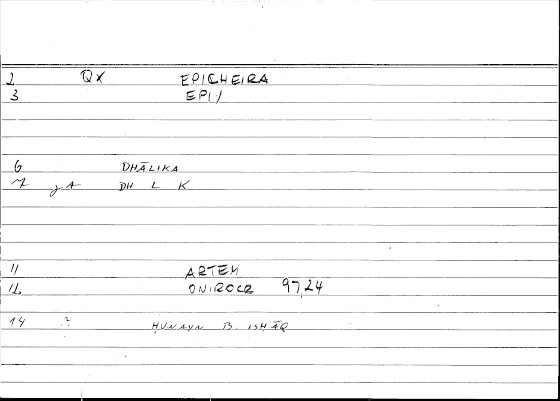 2 QX EPICHEIRA
3 EPI/
6 DHĀLIKA
7 gA DH L K
11 ARTEM
12 ONIROCR 97,24
14 ? ḤUNAYN B. ISḤĀQ